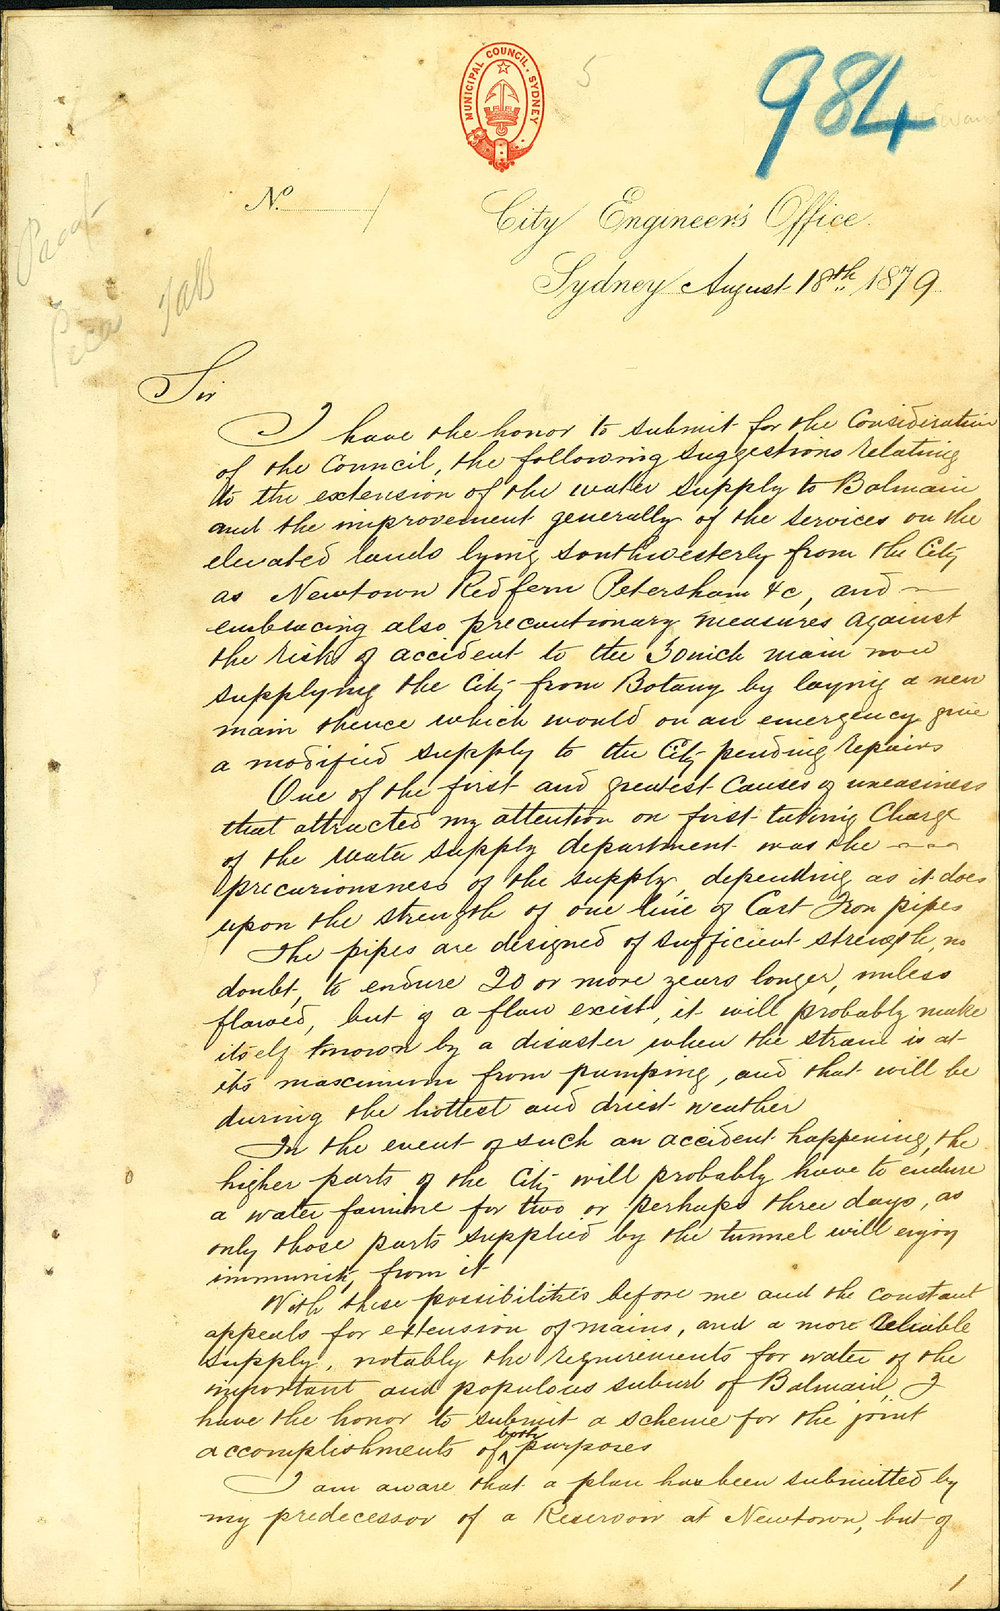 MUNICIPAL COUNCIL. SYDNEY
5
984
No.
City Engineer's Office.
Sydney August 18th 1879
Sir
I have the honor to submit for the Consideration
of the Council, the following suggestions relating
to the extension of the water supply to Balmain
and the improvement generally of the services on the
elevated lands lying southwesterly from the City
as Newtown Redfern Petersham &c, and
embracing also precautionary measures against
the risk of accident to the 30 inch main now
supplying the City from Botany by laying a new
main thence which would on an emergency give
a modified supply to the City pending repairs
One of the first and greatest Causes of uneasiness
that attracted my attention on first taking Charge
of the Water supply department was the
precariousness of the supply, depending as it does
upon the strength of one line of Cast Iron pipes
The pipes are designed of sufficient strength, no
doubt, to endure 20 or more years longer, unless
flawed, but if a flaw exist, it will probably make
itself known by a disaster when the strain is at
its maximum from pumping, and that will be
during the hottest and driest weather
In the event of such an accident happening, the
higher parts of the City will probably have to endure
a water famine for two or perhaps three days, as
only those parts supplied by the tunnel will enjoy
immunity from it
With these possibilities before me and the constant
appeals for extension of mains, and a more reliable
supply, notably the requirements for water of the
important and populous suburb of Balmain, I
have the honor to submit a scheme for the joint
accomplishments of both purposes
I am aware that a plan has been submitted by
my predecessor of a Reservoir at Newtown, but of
1